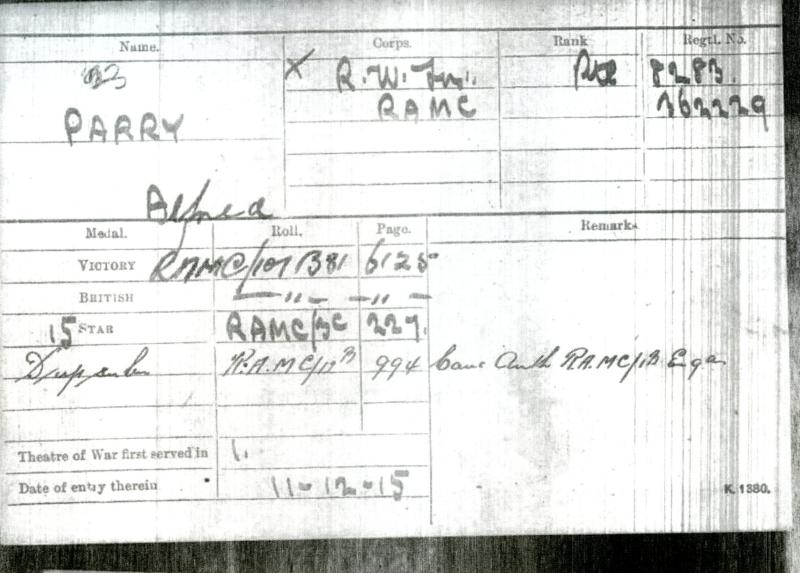 Name. Corps. Rank Regtl. No.
X R.W. Fus. Pte 8283.
RAMC 362229
PARRY
Alfred
Medal. Roll. Page. Remarks.
VICTORY RAMC/101B81 6125
BRITISH — " — — " —
15 STAR RAMC/3C 227.
R.A.MC/17B 994 Canc Auth R.A.MC/1B
Theatre of War first served in 1.
Date of entry therein 11-12-15
K. 1380.